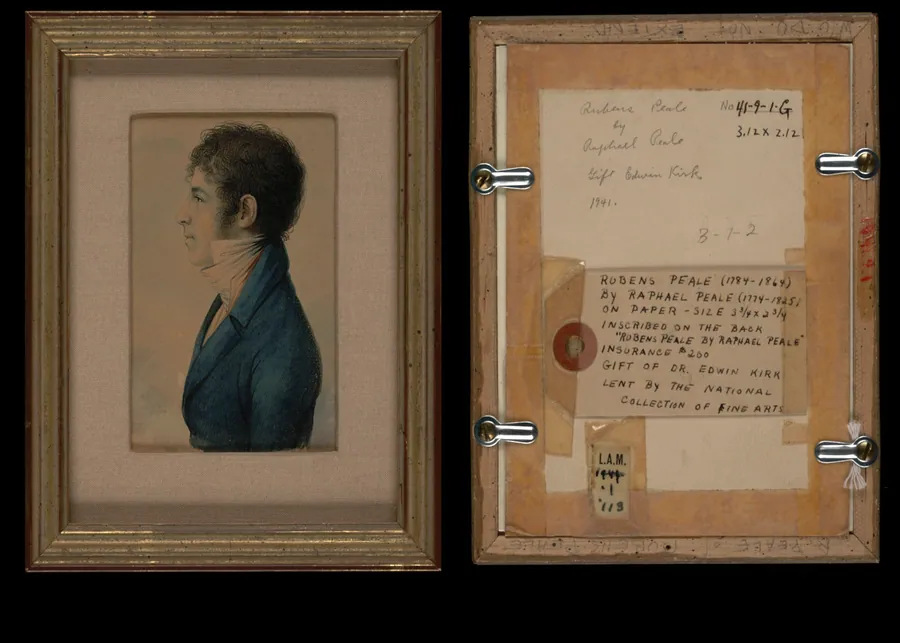 Rubens Peale No 45-9-1-G
by 3.12 x 2.12
Raphael Peale
Gift Edwin Kirk
1941.
3-7-2
RUBENS PEALE (1784-1864)
BY RAPHAEL PEALE (1774-1825)
ON PAPER - SIZE 3 3/4 x 2 3/4
INSCRIBED ON THE BACK
"RUBENS PEALE BY RAPHAEL PEALE"
INSURANCE $200
GIFT OF DR. EDWIN KIRK
LENT BY THE NATIONAL
COLLECTION OF FINE ARTS
L.A.M.